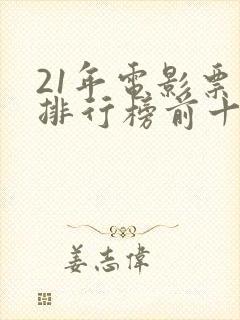 21年電影票
排行榜前十
姜志偉